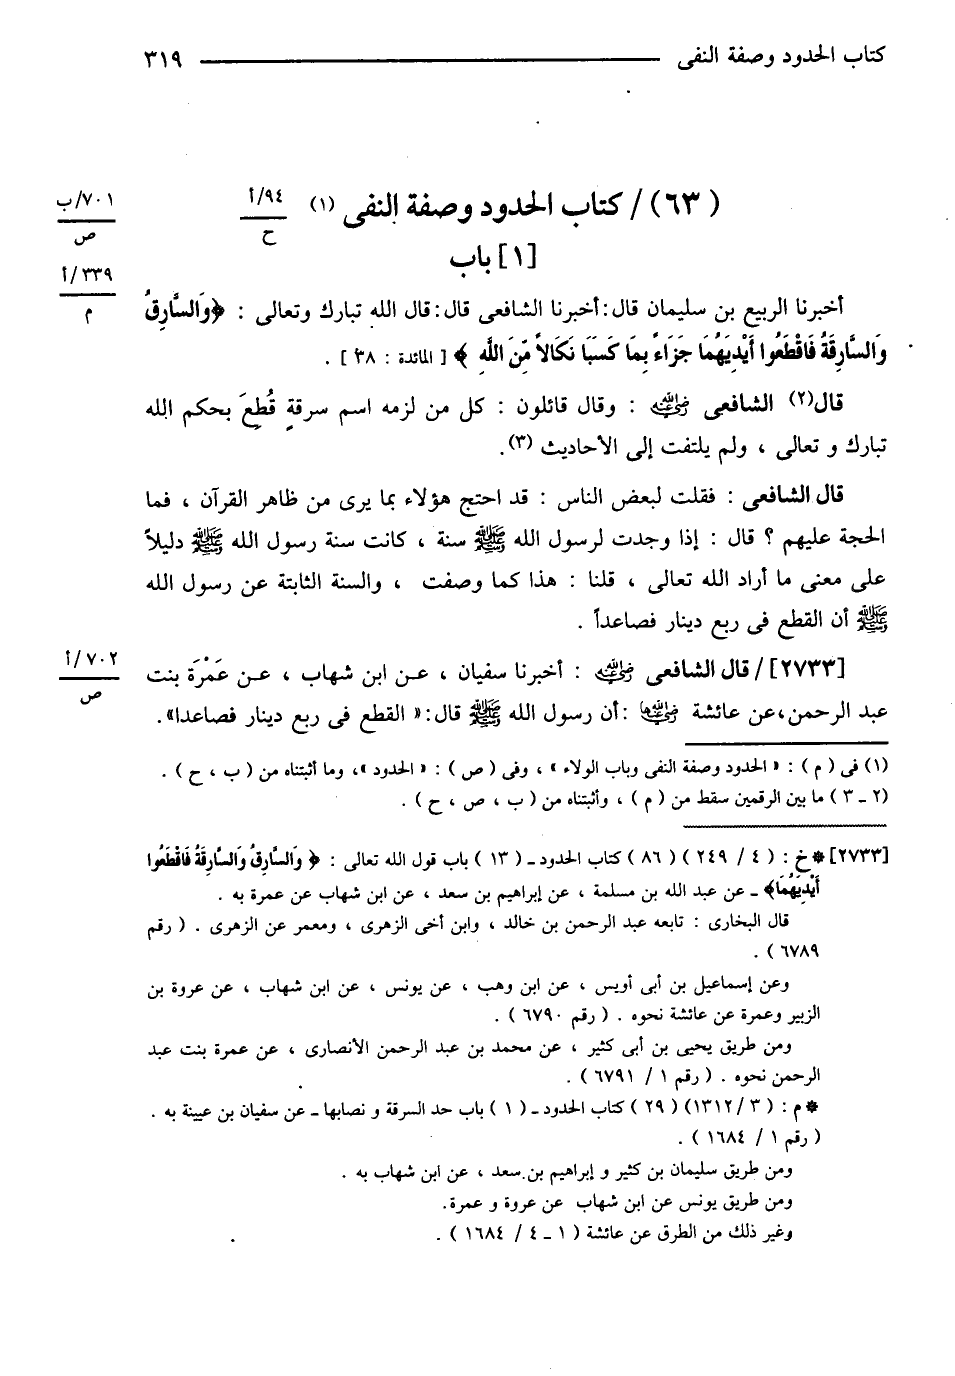 كتاب الحدود وصفة النفى ٣١٩
( ٦٣) / كتاب الحدود وصفة النفى (١)
٩٤/أ
ح
٧٠١/ب
ص
[١] باب
٣٣٩/أ
م
أخبرنا الربيع بن سليمان قال: أخبرنا الشافعى قال: قال الله تبارك وتعالى : ﴿وَالسَّارِقُ
وَالسَّارِقَةُ فَاقْطَعُوا أَيْدِيَهُمَا جَزَاءً بِمَا كَسَبَا نَكَالاً مِّنَ اللَّهِ ﴾ [ المائدة : ٣٨ ] .
قال(٢) الشافعى رضي الله عنه : وقال قائلون : كل من لزمه اسم سرقةٍ قُطِعَ بحكم الله
تبارك و تعالى ، ولم يلتفت إلى الأحاديث (٣).
قال الشافعى : فقلت لبعض الناس : قد احتج هؤلاء بما يرى من ظاهر القرآن ، فما
الحجة عليهم ؟ قال : إذا وجدت لرسول الله ﷺ سنة ، كانت سنة رسول الله ﷺ دليلاً
على معنى ما أراد الله تعالى ، قلنا : هذا كما وصفت ، والسنة الثابتة عن رسول الله
ﷺ أن القطع فى ربع دينار فصاعداً .
[٢٧٣٣] / قال الشافعى رضي الله عنه : أخبرنا سفيان ، عـن ابن شهاب ، عـن عَمْرَة بنت
٧٠٢/أ
ص
عبد الرحمن،عن عائشة رضي الله عنها :أن رسول الله ﷺ قال:« القطع فى ربع دينار فصاعدا».
(١) فى ( م ) : « الحدود وصفة النفى وباب الولاء » ، وفى ( ص ) : « الحدود »، وما أثبتناه من ( ب ، ح ) .
(٢ ـ ٣ ) ما بين الرقمين سقط من ( م ) ، وأثبتناه من ( ب ، ص ، ح ) .
[٢٧٣٣] * خ : ( ٤ / ٢٤٩ ) ( ٨٦ ) كتاب الحدود ـ ( ١٣ ) باب قول الله تعالى : ﴿ وَالسَّارِقُ وَالسَّارِقَةُ فَاقْطَعُوا
أَيْدِيَهُمَا﴾ ـ عن عبد الله بن مسلمة ، عن إبراهيم بن سعد ، عن ابن شهاب عن عمرة به .
قال البخارى : تابعه عبد الرحمن بن خالد ، وابن أخى الزهرى ، ومعمر عن الزهرى . ( رقم
٦٧٨٩ ) .
وعن إسماعيل بن أبى أويس ، عن ابن وهب ، عن يونس ، عن ابن شهاب ، عن عروة بن
الزبير وعمرة عن عائشة نحوه . ( رقم ٦٧٩٠ ) .
ومن طريق يحيى بن أبى كثير ، عن محمد بن عبد الرحمن الأنصارى ، عن عمرة بنت عبد
الرحمن نحوه . ( رقم ١ / ٦٧٩١ ) .
* م : ( ٣ /١٣١٢) ( ٢٩ ) كتاب الحدود ـ ( ١ ) باب حد السرقة و نصابها ـ عن سفيان بن عيينة به .
( رقم ١ / ١٦٨٤ ) .
ومن طريق سليمان بن كثير و إبراهيم بن سعد ، عن ابن شهاب به .
ومن طريق يونس عن ابن شهاب عن عروة و عمرة.
وغير ذلك من الطرق عن عائشة ( ١ ـ ٤ / ١٦٨٤ ) .